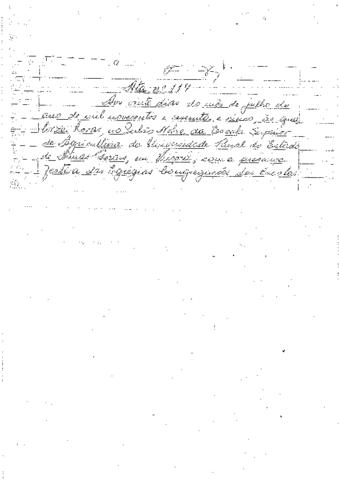 Ata nº 114
Aos vinte dias do mês de julho do
ano de mil novecentos e sessenta e cinco, às qua
torze horas, no Salão Nobre da Escola Superior
de Agricultura da Universidade Rural do Estado
de Minas Gerais, em Viçosa, com a presença
das Egrégias Congregações das Escolas